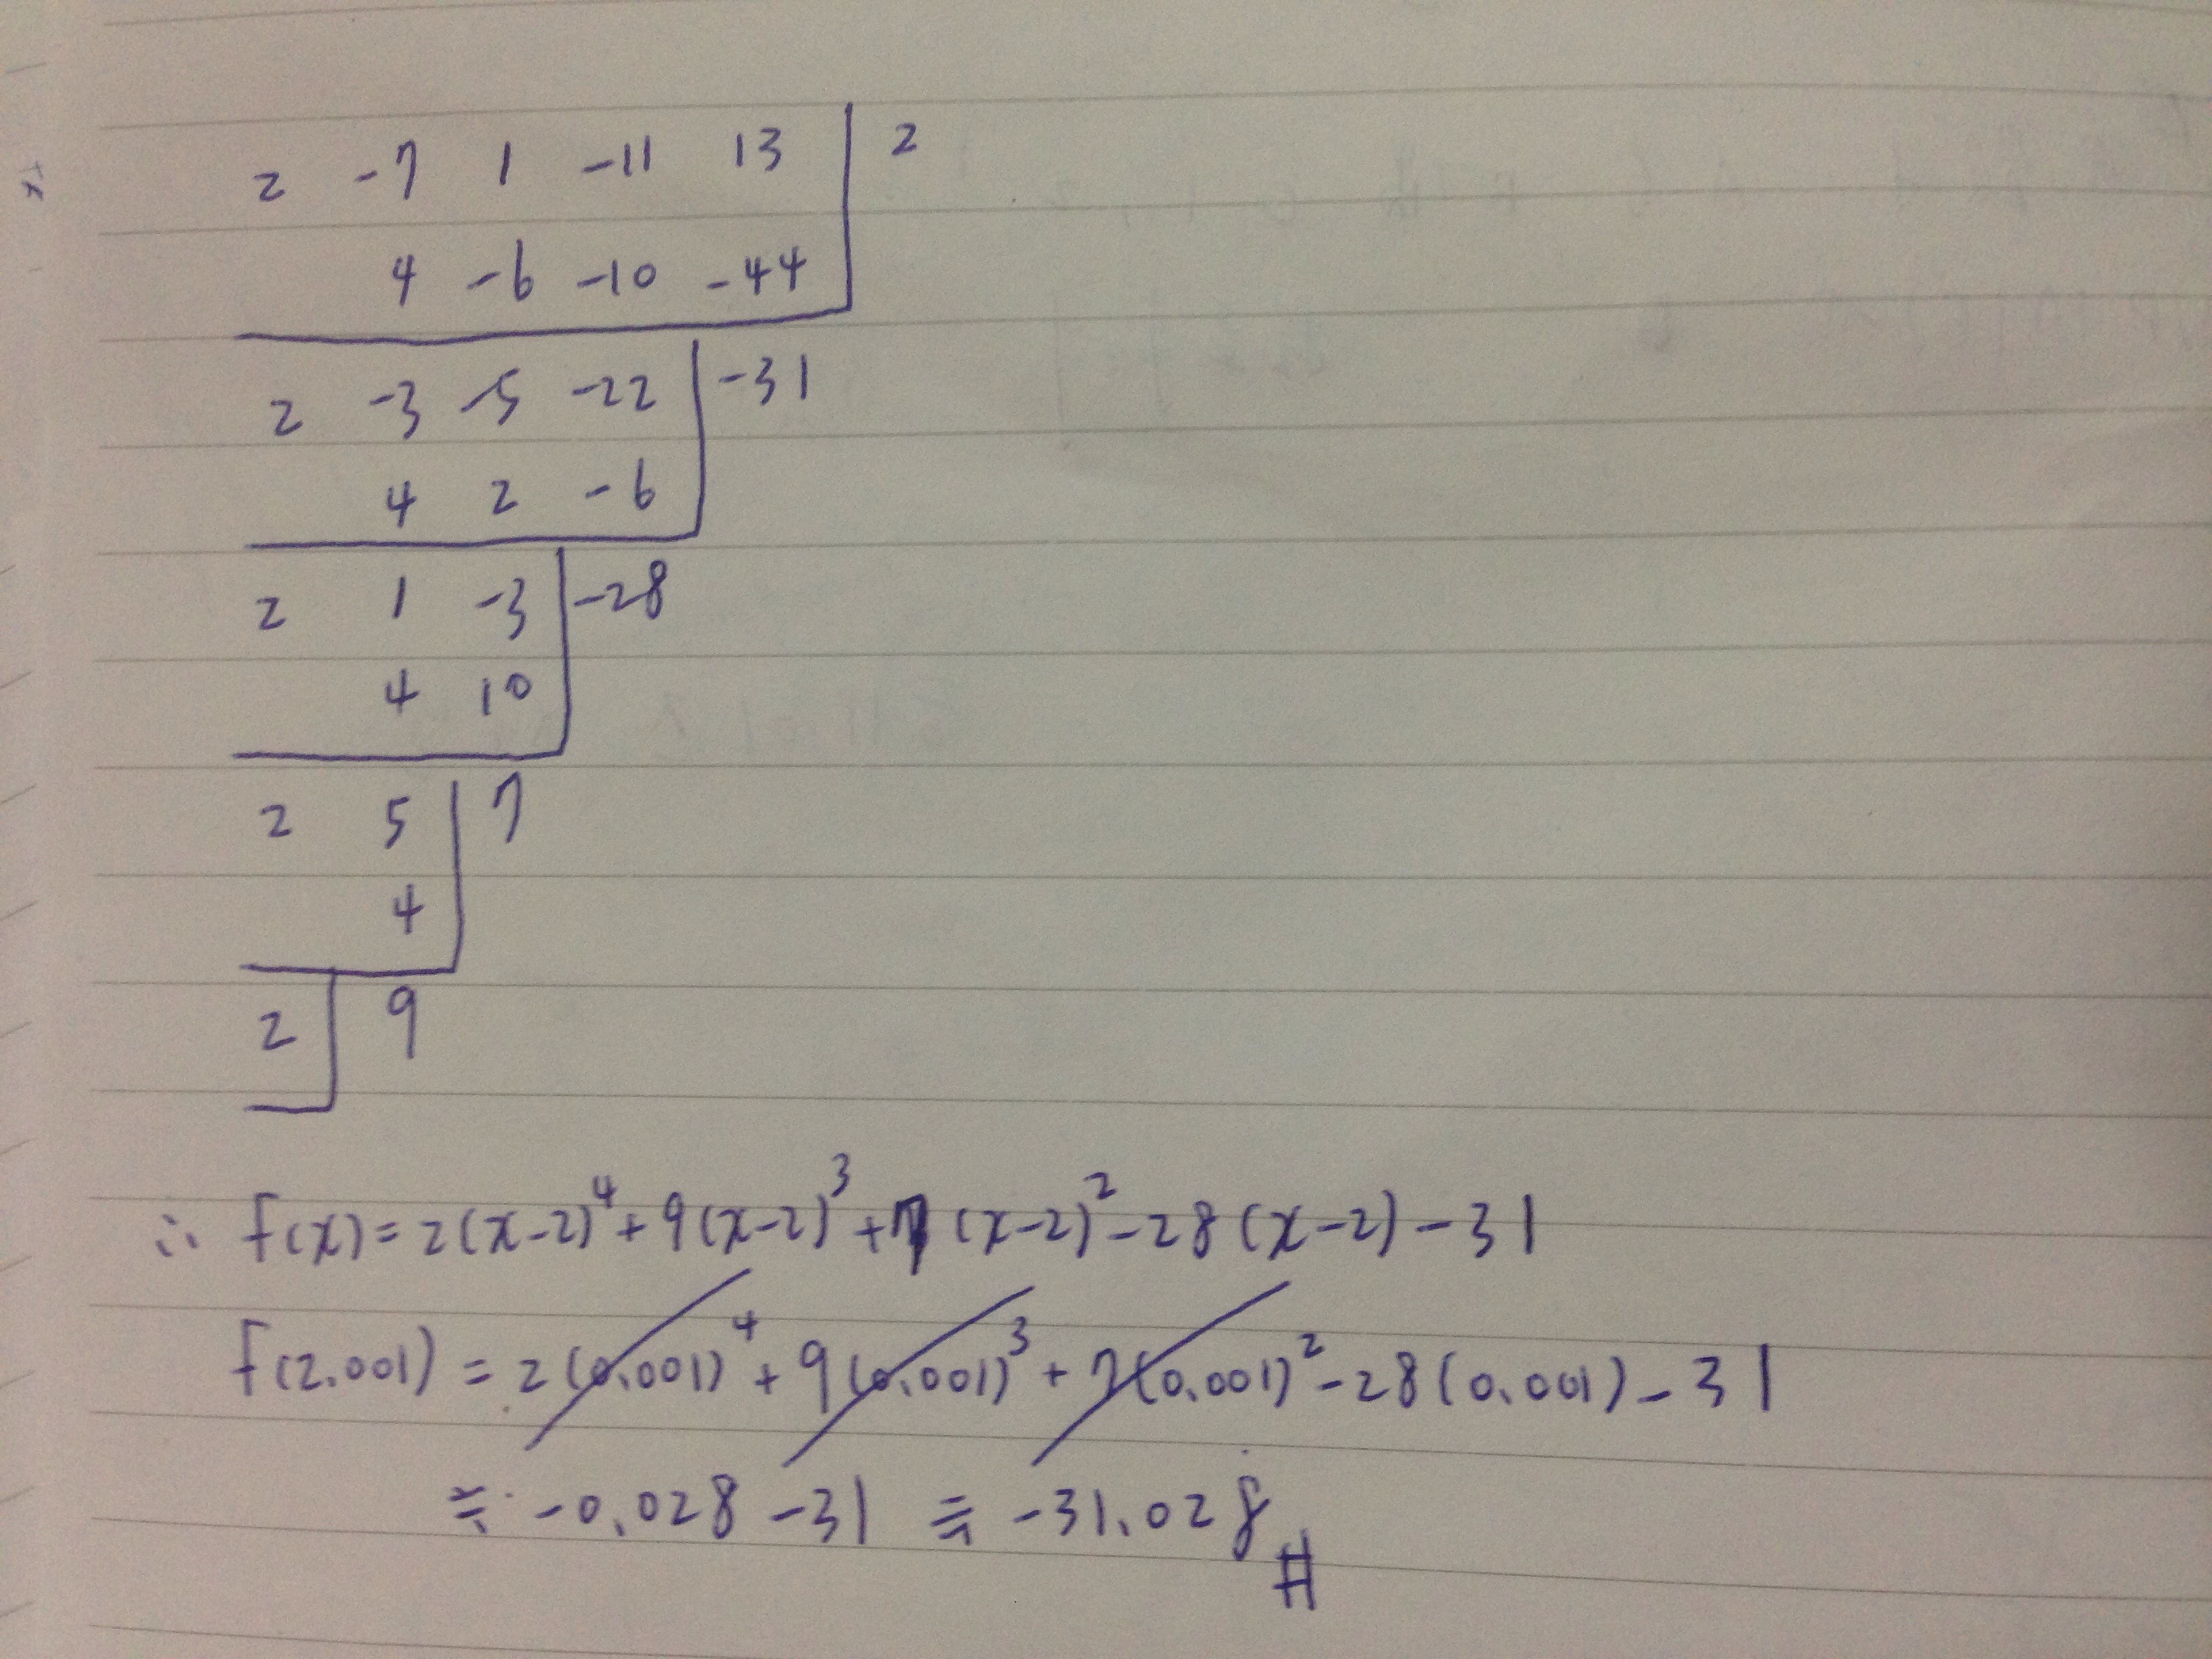 2 -7 1 -11 13 | 2
4 -6 -10 -44
2 -3 -5 -22 | -31
4 2 -6
2 1 -3 | -28
4 10
2 5 | 7
4
2 | 9
∴ f(x)=2(x-2)⁴+9(x-2)³+7(x-2)²-28(x-2)-31
f(2.001)=2(0.001)⁴+9(0.001)³+7(0.001)²-28(0.001)-31
≒ -0.028-31 ≒ -31.028 #